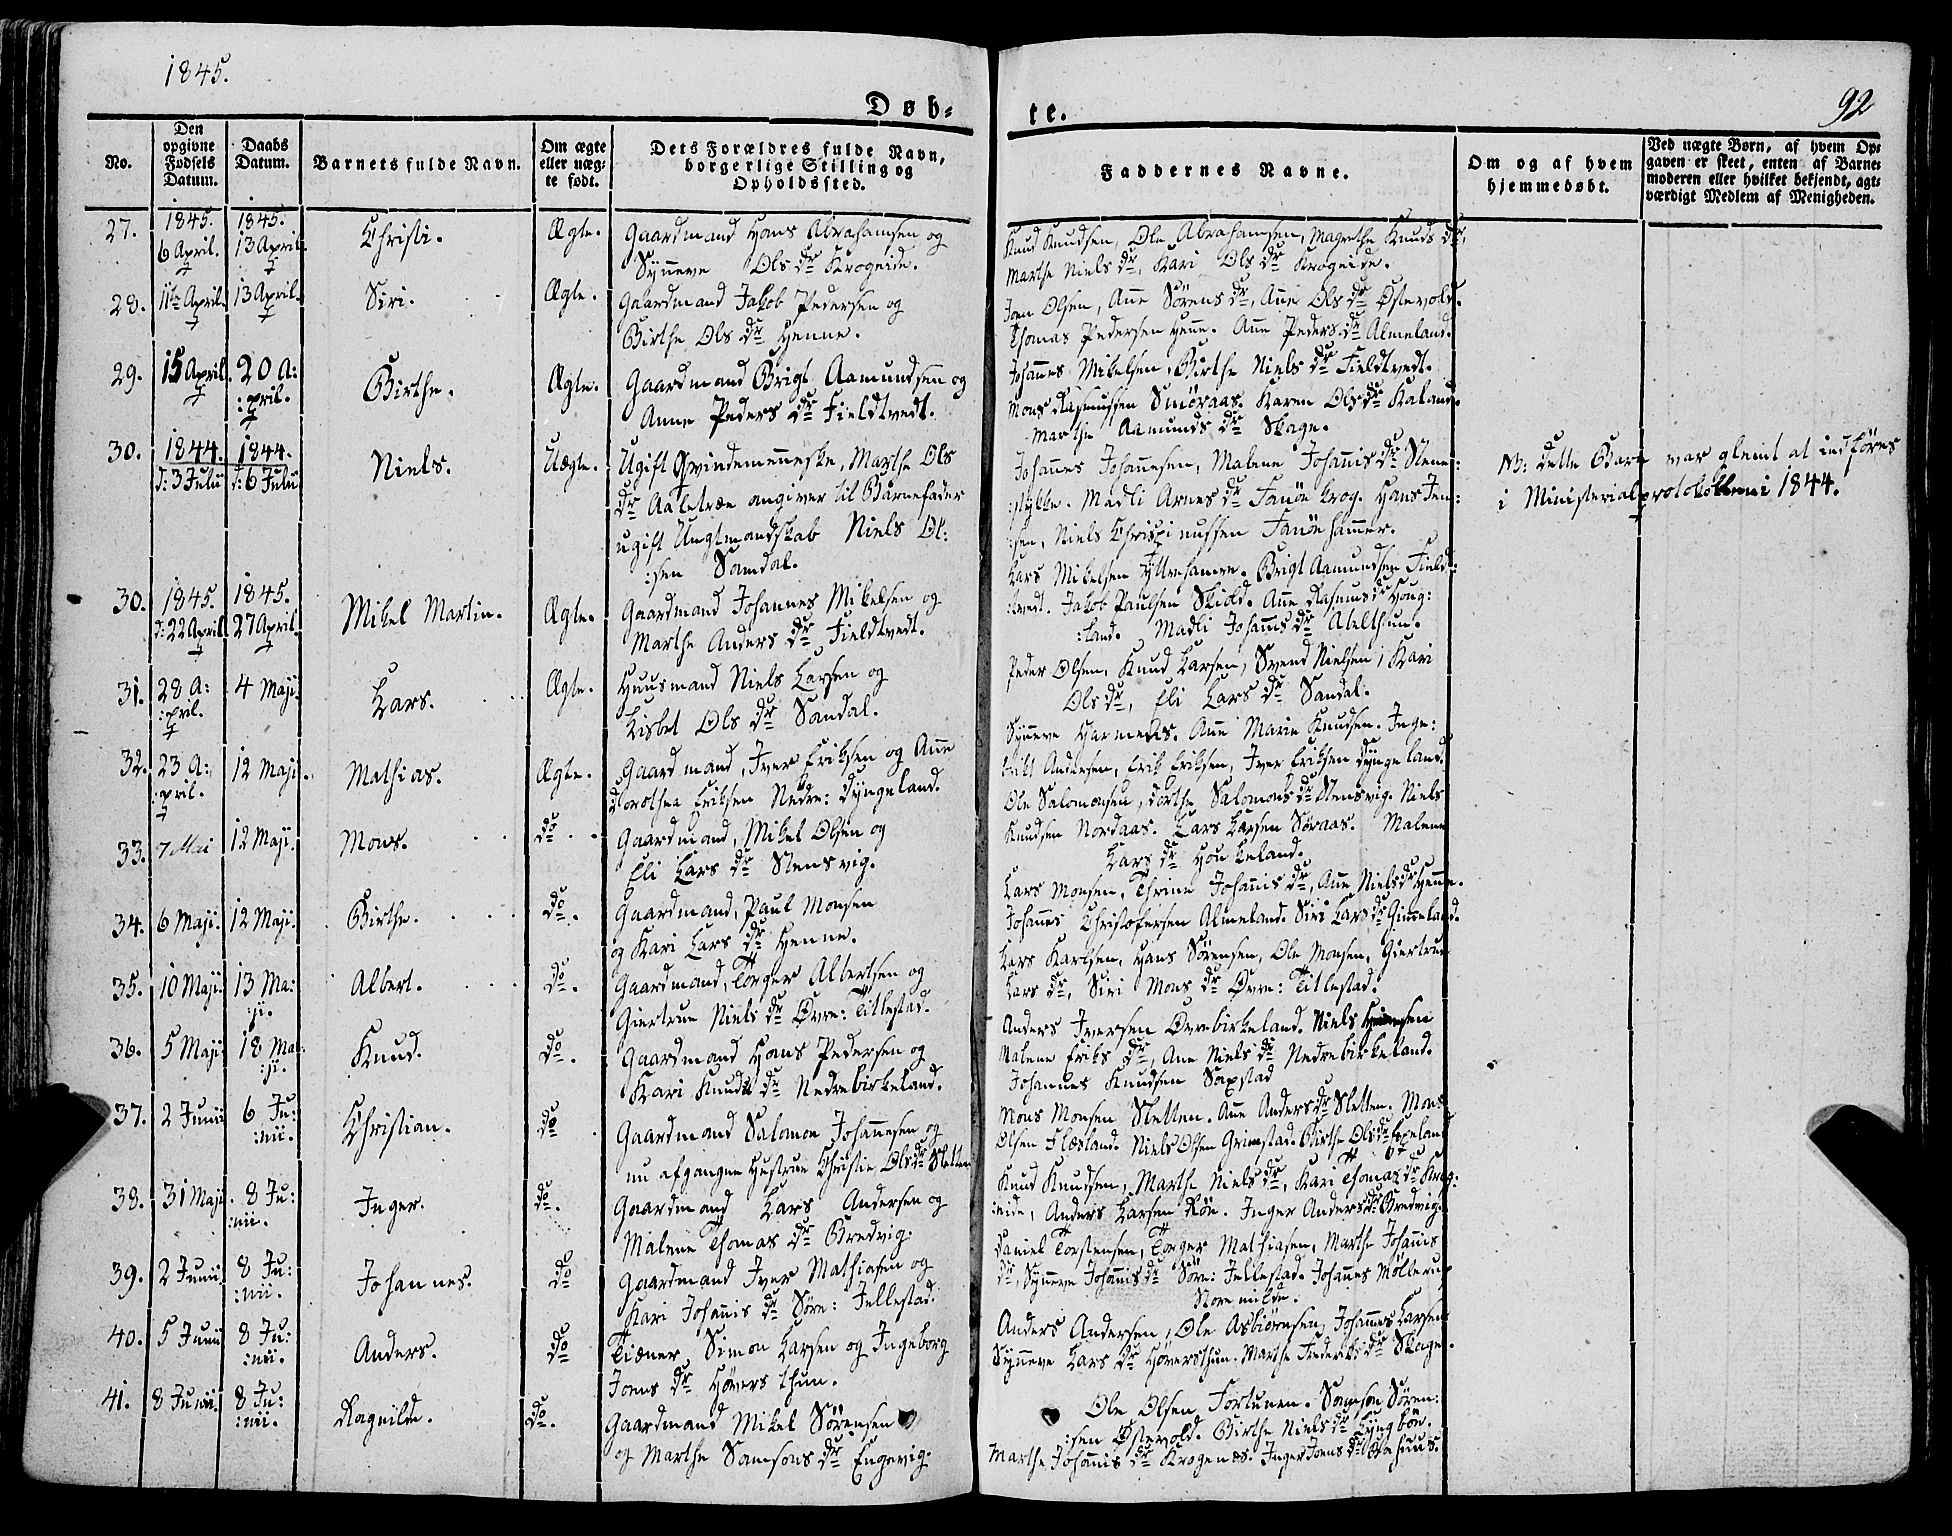 1845.
Døb-
te.
92
No.
Den opgivne Fødsels Datum.
Daabs Datum.
Barnets fulde Navn.
Om ægte eller uæg-te født.
Dets Forældres fulde Navn, borgerlige Stilling og Opholdssted.
Faddernes Navne.
Om og af hvem hjemmedøbt.
Ved uægte Børn, af hvem Op-gaven er skeet, enten af Barne-moderen eller hvilket bekjendt, agt-værdigt Medlem af Menigheden.
27. 1845. 6 April. 1845. 13 April. Christi. Ægte. Gaardmand Hans Abrahamsen og
Synneve Ols dr Krogeide.
Knud Knudsen, Ole Abrahamsen, Magrethe Knuds dr,
Marthe Niels dr, Kari Ols dr Krogeide.
28. 11te April. 13 April. Siri. Ægte. Gaardmand Jakob Pedersen og
Birthe Ols dr Henne.
Joen Olsen, Ane Sørens dr, Ane Ols dr Østevold.
Thomas Pedersen Henne. Ane Peders dr Almeland.
29. 15 April. 20 A:
:pril. Birthe. Ægte. Gaardmand Brigt Aamundsen og
Anne Peders dr Fieldtvedt.
Johannes Mikelsen, Birthe Niels dr Fieldtvedt.
Mons Rasmussen Smøraas. Karen Ols dr Kaland.
Marthe Aamunds dr Skage.
30. 1844. d: 3 Julii 1844. d: 6 Julii Niels. Uægte. Ugift Qvindemenneske, Marthe Ols
dr Aaletræe angiver til Barnefader
ugift Ungtmandskab Niels Ol:
:sen Samdal.
Johannes Johannesen, Malene Johannis dr Stene:
:stykke. Madli Arnes dr Fanøe krog. Hans Jen:
:sen, Niels Chrispinussen Fanøe hamer.
NB: Dette Barn var glemt at indføres
i Ministerialprotokollen i 1844.
30. 1845. d: 22 April 1845. 27 April. Mikel Martin. Ægte. Gaardmand Johannes Mikelsen og
Marthe Anders dr Fieldtvedt.
Lars Mikelsen Yttrehamre. Brigt Aamundsen Fieldt:
:tvedt. Jakob Paulsen Skiold. Ane Rasmus dr Houg:
:land. Madli Johannis dr Aletthun.
31. 28 A:
:pril. 4 Maji. Lars. Ægte. Huusmand Niels Larsen og
Lisbet Ols dr Sandal.
Peder Olsen, Knud Larsen, Svend Nielsen, Kari
Ols dr, Eli Lars dr Sandal.
32. 23 A:
:pril. 12 Maji. Mathias. Ægte. Gaardmand, Iver Eriksen og Ane
Dorothea Eriksen Nedre: Dyngeland.
Synneve Harmens. Ane Marie Knudsen. Inge:
brikt Andersen, Erik Eriksen, Iver Eriksen Dyngeland.
33. 7 Mai 12 Maji. Mons. do Gaardmand, Mikel Olsen og
Eli Lars dr Stensvig.
Ole Salomonsen, Dorthe Salomons dr Stensvig. Niels
Knudsen Nordaas. Lars Larsen Søraas. Malene
Lars dr Houkeland.
34. 6 Maji. 12 Maji. Birthe. do. Gaardmand, Paul Monsen
og Kari Lars dr Henne.
Lars Monsen, Thrine Johannis dr, Ane Niels dr Henne.
Johannes Christofersen Almeland. Siri Lars dr Gimeland.
35. 10 Maji. 13 Ma:
:ji. Albert. do. Gaardmand, Torger Albertsen og
Giertrue Niels dr Øvre: Titlestad.
Lars Karlsen, Hans Sørensen, Ole Monsen, Giertrue
Lars dr, Siri Mons dr Øvre: Titlestad.
36. 5 Maji 18 Ma:
:ji. Knud. do. Gaardmand Hans Pedersen og
Kari Knuds dr Nedrebirkeland.
Anders Iversen Øvrebirkeland. Niels
Malene Eriks dr, Ane Niels dr Nedrebirkeland.
Johannes Knudsen Sapstad
37. 2 Junii 6 Ju:
:nii. Christian. do Gaardmand Salomon Johannesen og
nu afgangne Hustrue Christie Ols dr Sletten
Mons Monsen Sletten. Ane Anders dr Sletten. Mons
Olsen Flæsland. Niels Olsen Grimstad. Birthe Ols dr Espeland
38. 31 Maji 8 Ju:
:nii. Inger. do. Gaardmand Lars Andersen og
Malene Thomas dr Bredvig.
Knud Knudsen, Marthe Niels dr, Kari Thomas dr Krog:
:eide, Anders Larsen Røe. Inger Anders dr Bredvig.
39. 2 Junii 8 Ju:
:nii. Johannes. do Gaardmand Iver Mathiasen og
Kari Johannis dr Søre: Jellestad.
Daniel Torstensen, Torger Mathiasen, Marthe Johannis
dr, Synneve Johannis dr Søre: Jellestad. Johannes Møllerup
Store milde.
40. 5 Junii 8 Ju:
:nii. Anders. do Tiæner Simon Larsen og Ingeborg
Joens dr Høvers thun.
Anders Andersen, Ole Asbiørnsen, Johannes Larsen
Synneve Lars dr Høversthun. Marthe Frederiks dr Skage.
41. 8 Junii. 8 Ju:
:nii. Ragnilde. do. Gaardmand Mikel Sørensen
og Marthe Samsons dr Engevig.
Ole Olsen Fortunen. Samson Søren:
:sen Østevold. Birthe Niels dr Lyngbøe.
Marthe Johannis dr Krogenæs. Inger Joens dr